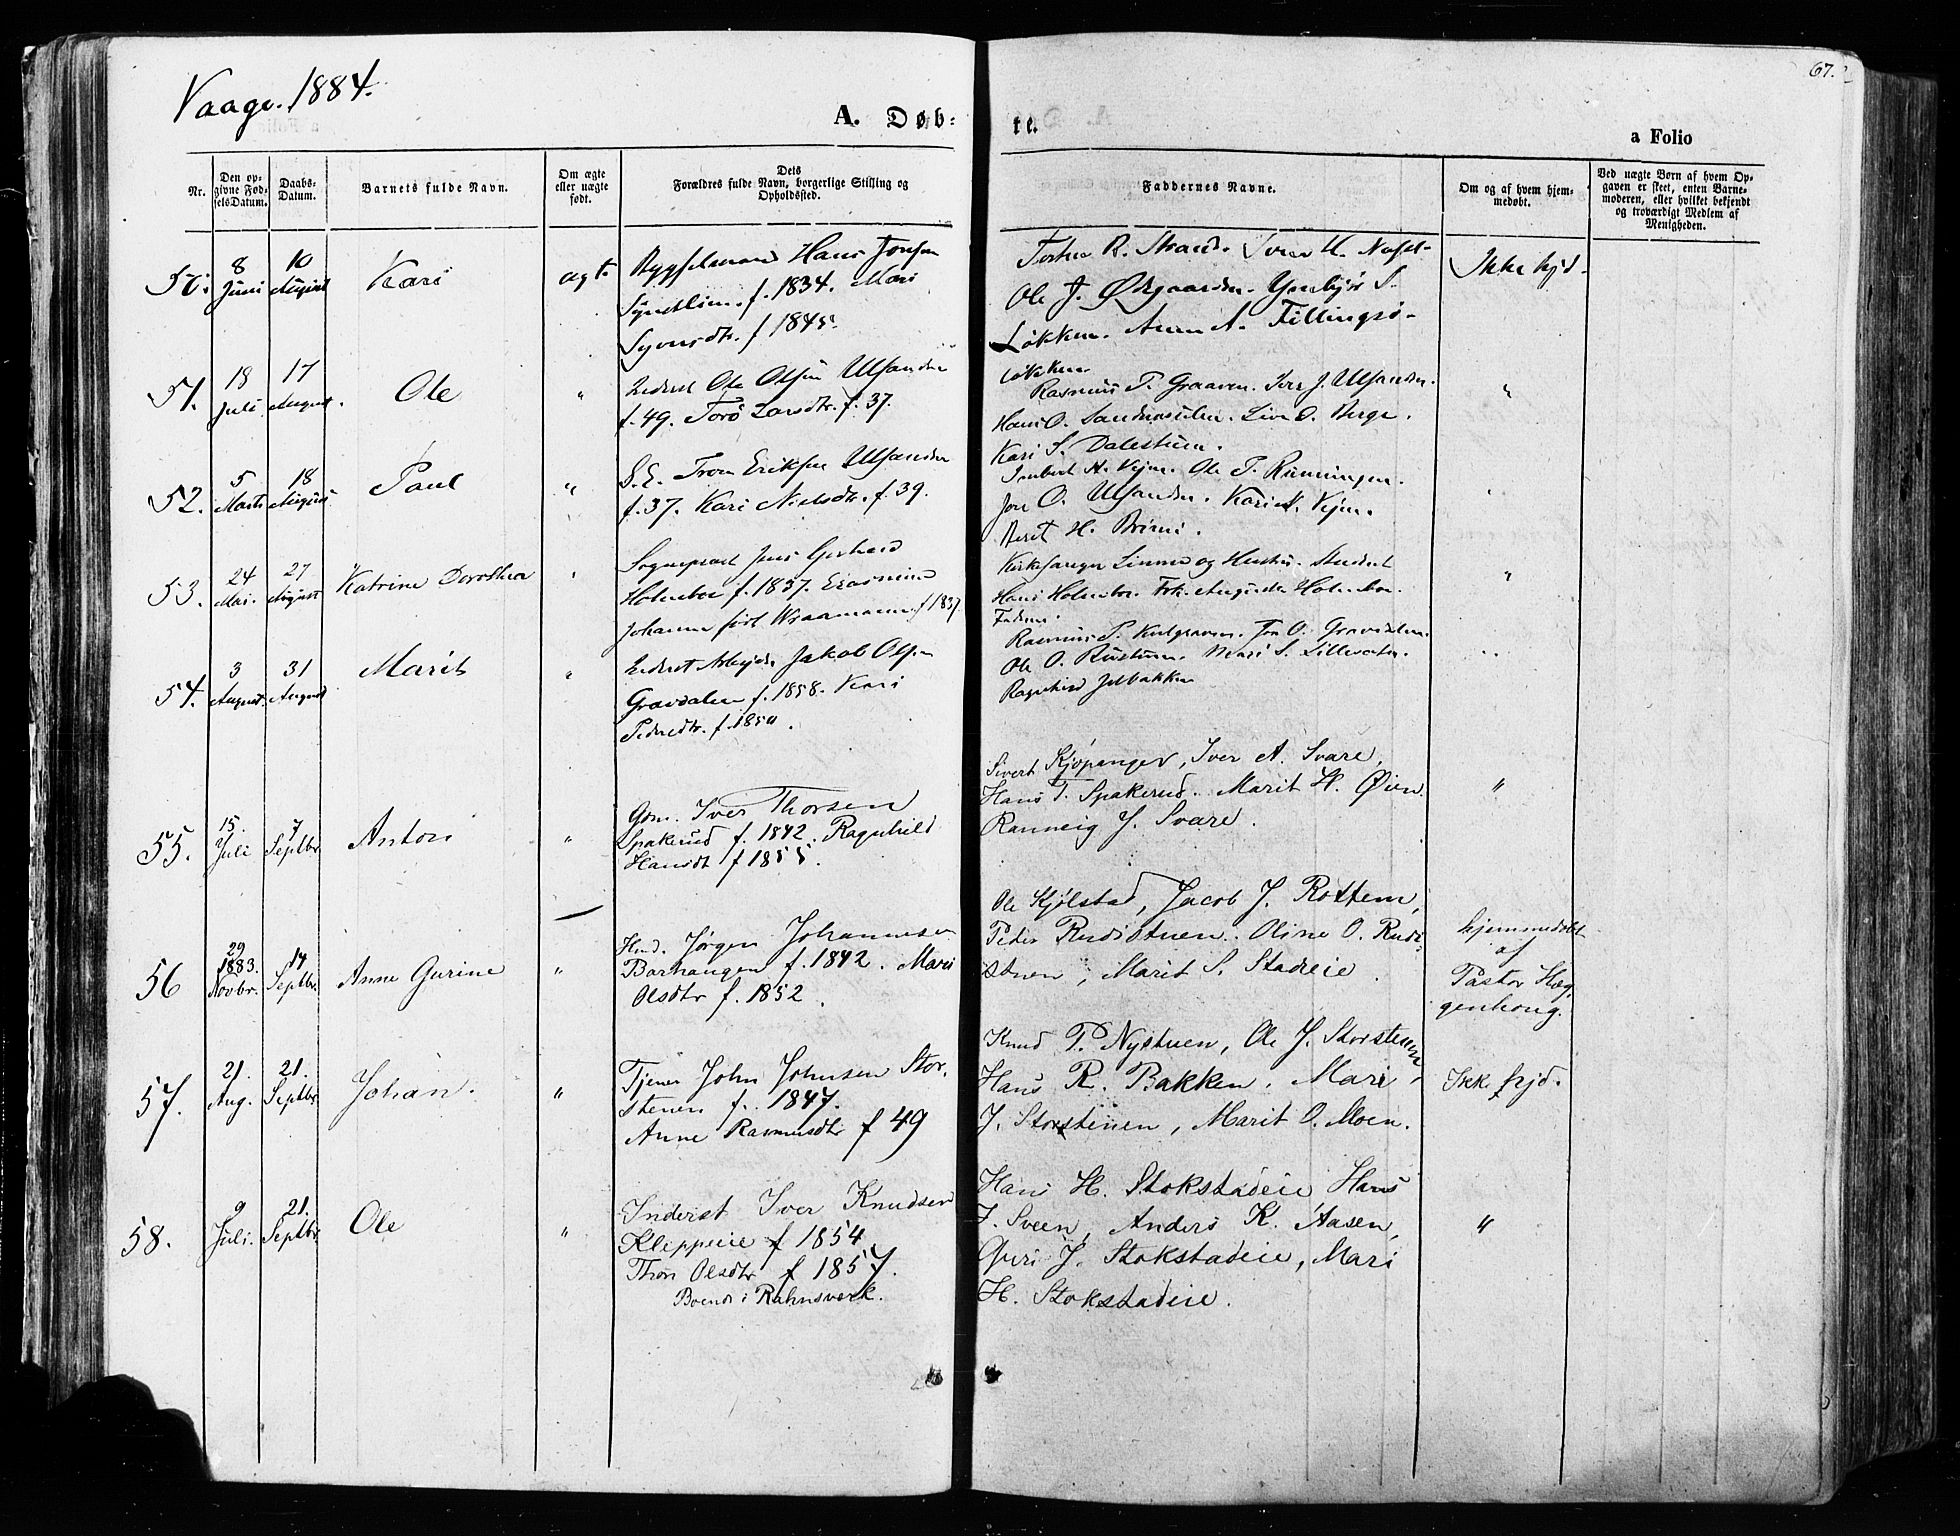 Vaage. 1884.
67.
A. Døb-
te.
a Folio
Nr.
Den op-
givne Fød-
selsDatum.
Daabs-
Datum.
Barnets fulde Navn.
Om ægte
eller uægte
født.
Dets
Forældres fulde Navn, borgerlige Stilling og
Opholdssted.
Faddernes Navne.
Om og af hvem hjem-
medøbt.
Ved uægte Børn af hvem Op-
gaven er skeet, enten Barne-
moderen, eller hvilket bekjendt
og troværdigt Medlem af
Menigheden.
50.
8
Juni
10
August
Kari
ægt.
Bygselmand Hans
f. 1834. Mari
f. 1845.
R. Strand. Iver
Ole J. Ødegaarden. S.
Løkken. A.
Løkken.
Ikke hjd.
51.
18
Juli.
17
August.
Ole
"
Inderst Ole Olsen Ulsanden
f. 49. Torø Larsdtr. f. 37.
Rasmus P. Graaven. Iver J. Ulsanden.
Hans O. Live O. Berge.
Kari S. Dalestuen.
"
52.
5
Marts
18
August
Paul
"
Eriksen Ulsanden
f. 37. Kari Nielsdtr. f. 39.
Ole T. Runningen.
Jon O. Ulsanden. Kari
Beret H. Brimi.
53.
24
Mai.
27
August
Katrine Dorothea
"
Sognepræst Jens Gerhard
Holmboe f. 1837.
Johanne født f. 1837.
Kirkesanger Linne og Hustru. Student
Hans Holmboe. Frk. Augusta Holmboe.
Faderen.
"
54.
3
August.
31
August
Marit
"
Inderst Arbejder Jakob Olsen
Gravdalen f. 1858. Kari
Pedersdtr. f. 1850.
Rasmus P. Jon O. Gravdalen.
Ole O. Rustuen. Mari S.
Ragnhild
"
55.
15.
Juli
7
Septbr.
Anton
"
Gm. Iver Thorsen
Spakrud f. 1842. Ragnhild
Hansdt f 1855.
Sivert Kjøpanger, Iver A. Svare,
Hans T. Spakerud. Marit H. Øien.
Ranneig J. Svare.
"
56
29
1883.
Novbr.
14
Septbr.
Anne Gurine
"
Jørgen Johannesen
Barhaugen f. 1842. Mari
Olsdtr f. 1852.
Ole Kjølstad, Jacob J. Rottem,
Peder Rudistuen. Oline O. Rudi-
stuen, Marit S. Stadeie.
hjemmedøbt
af
Pastor Heg-
genhoug.
57.
21.
Aug.
21.
Septbr.
Johan.
"
Tjener John Johnsen Stor-
stenen f. 1847.
Anne Rasmusdtr f 49
Knud P. Nystuen, Ole J. Storstenen,
Hans R. Bakken. Mari
J. Storstenen, Marit O. Moen.
Ikke hjd.
58.
9
Juli.
21.
Septbr.
Ole
"
Inderst Iver Knudsen
Kleppeie f 1854
Thori Olsdtr f 1857.
Boende i Rahnsverk.
Hans H. Stokstadeie Hans
J. Sveen, Anders K. Aasen,
Guri J. Stokstadeie, Mari
H. Stokstadeie.
"